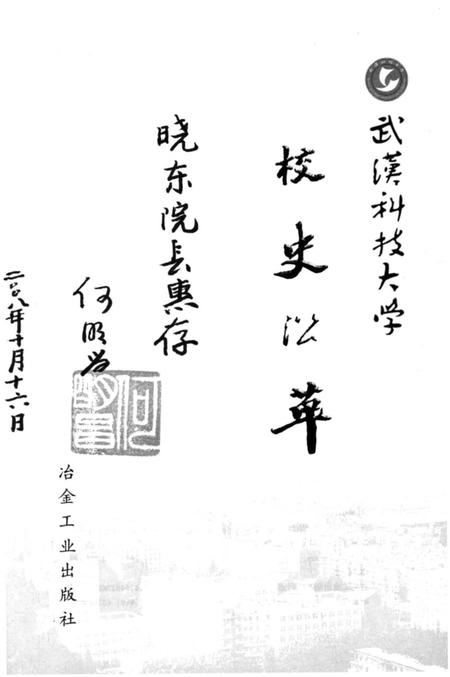 武漢科技大学
校史沿革
晓东院长惠存
何明昌
二〇〇八年十月十六日
冶金工业出版社